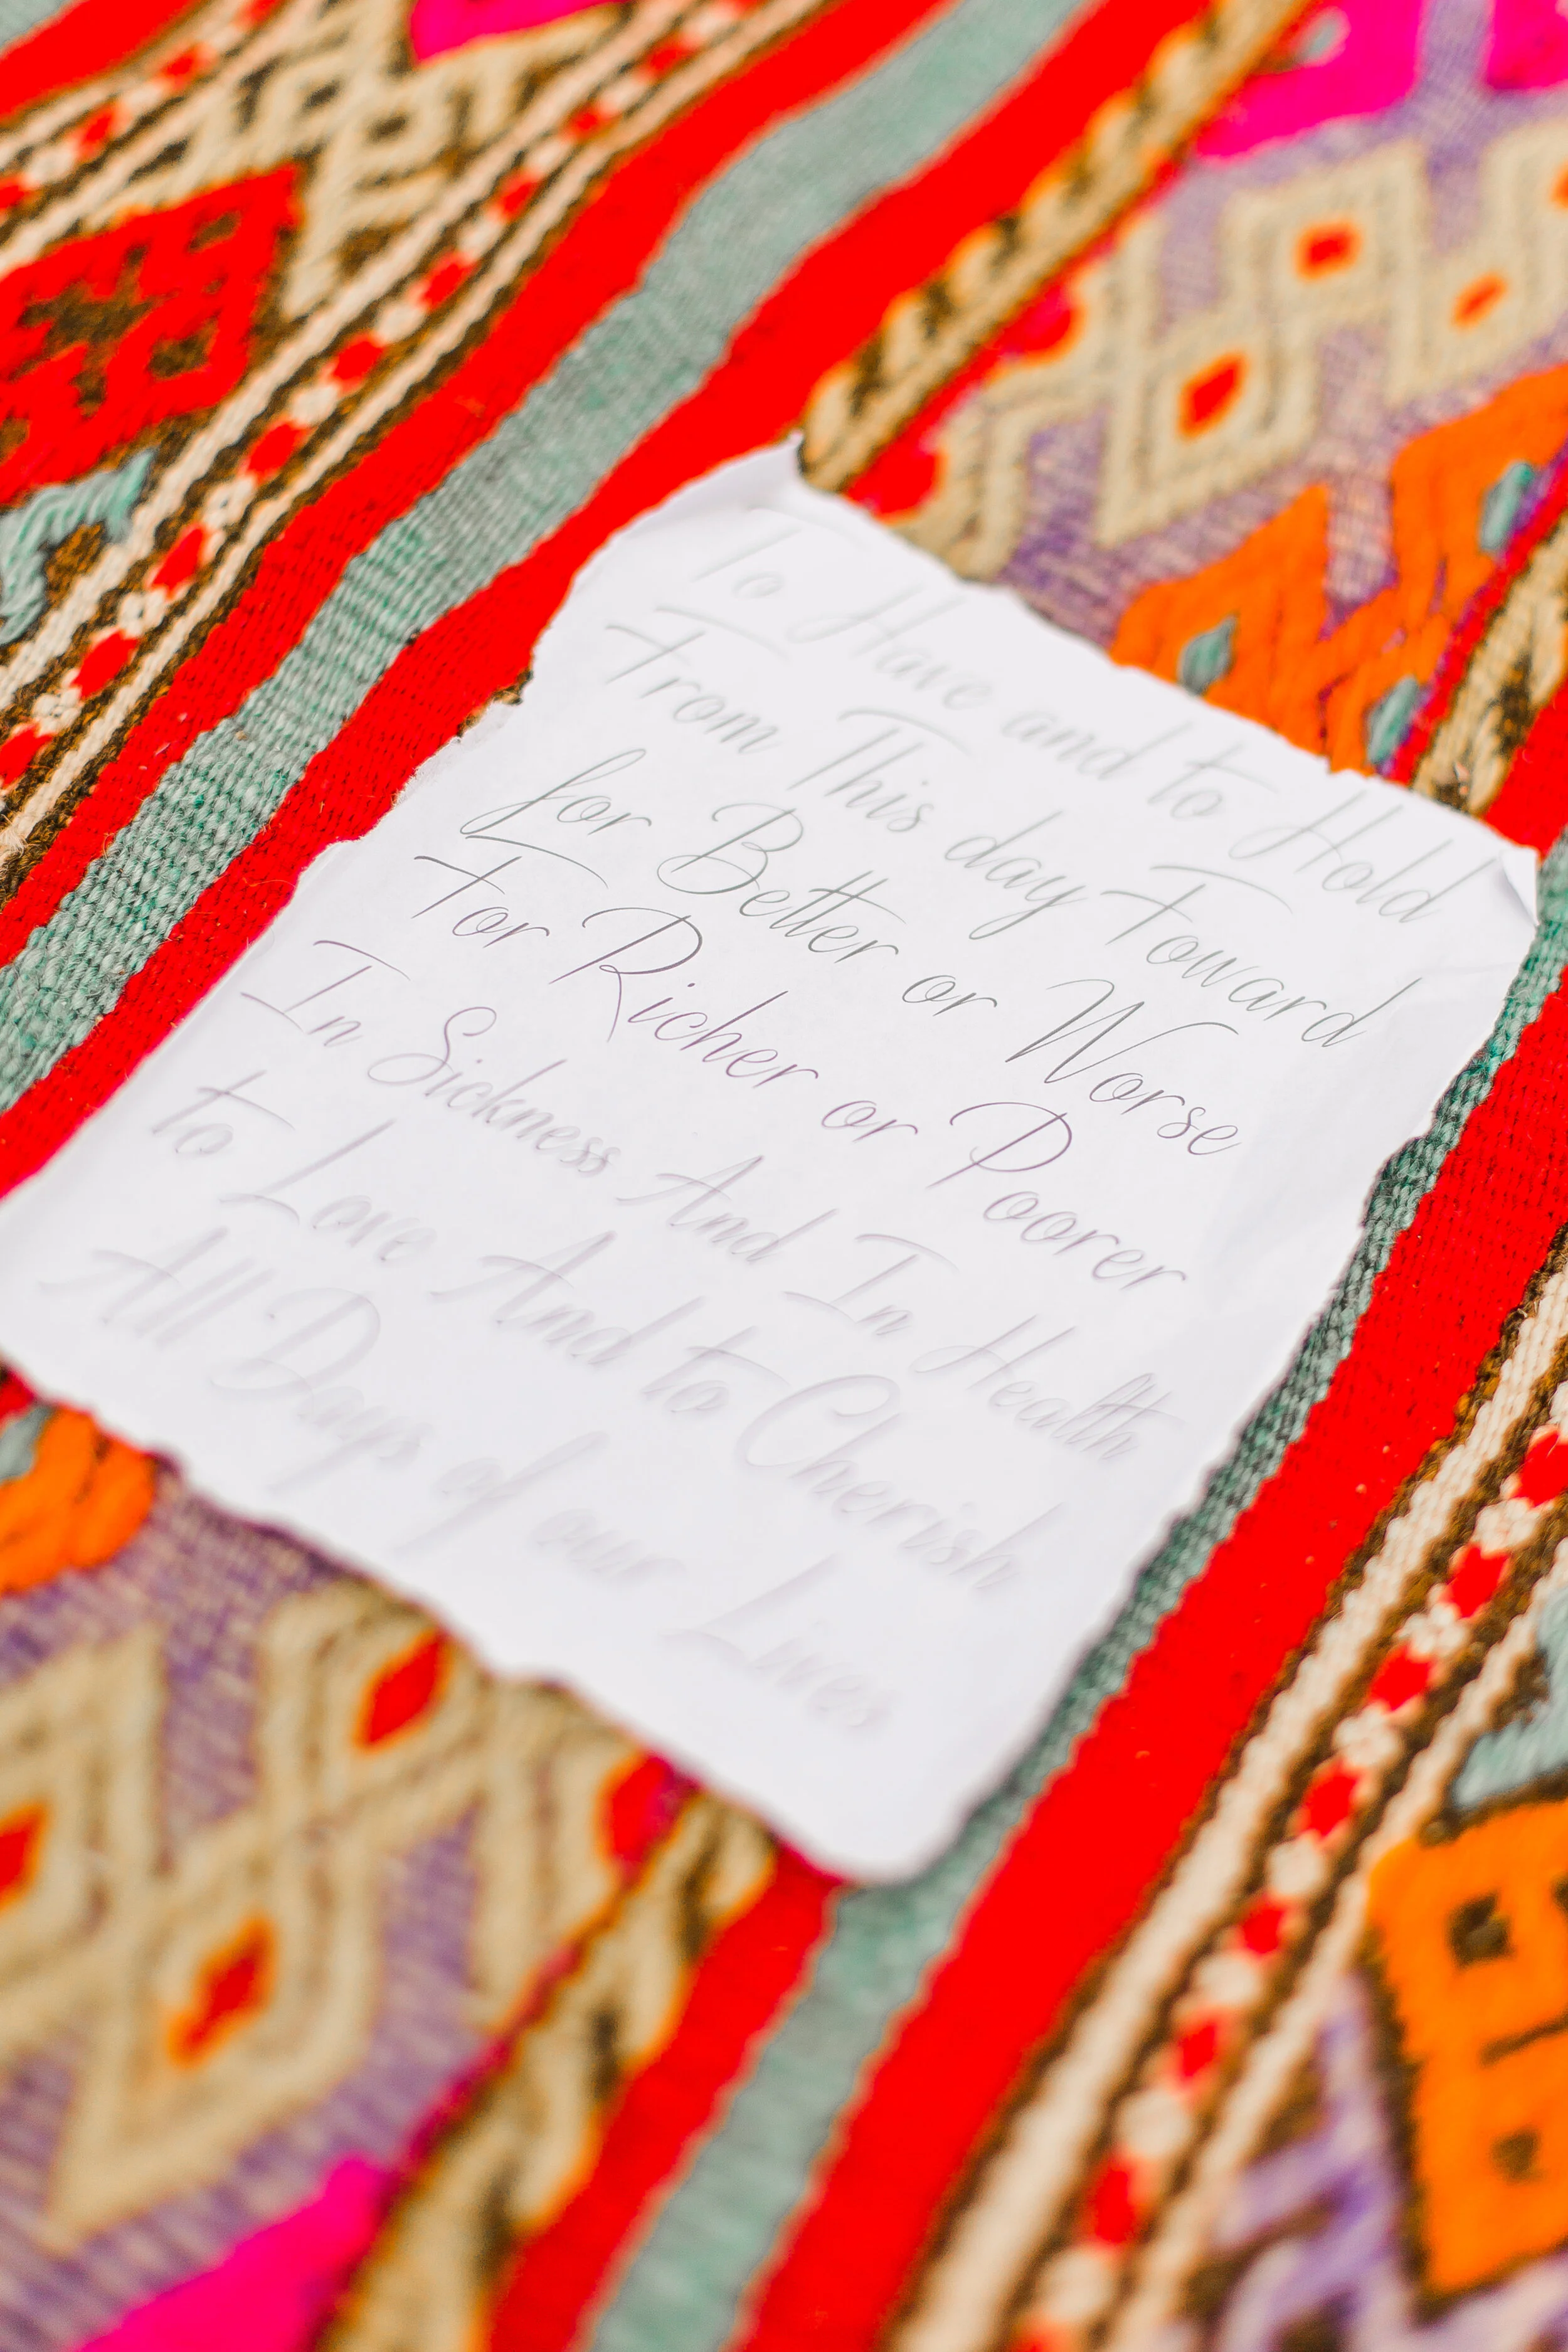 To Have and to Hold
From This day Foward
for Better or Worse
For Richer or Poorer
In Sickness And In Health
to Love And to Cherish
All Days of our Lives